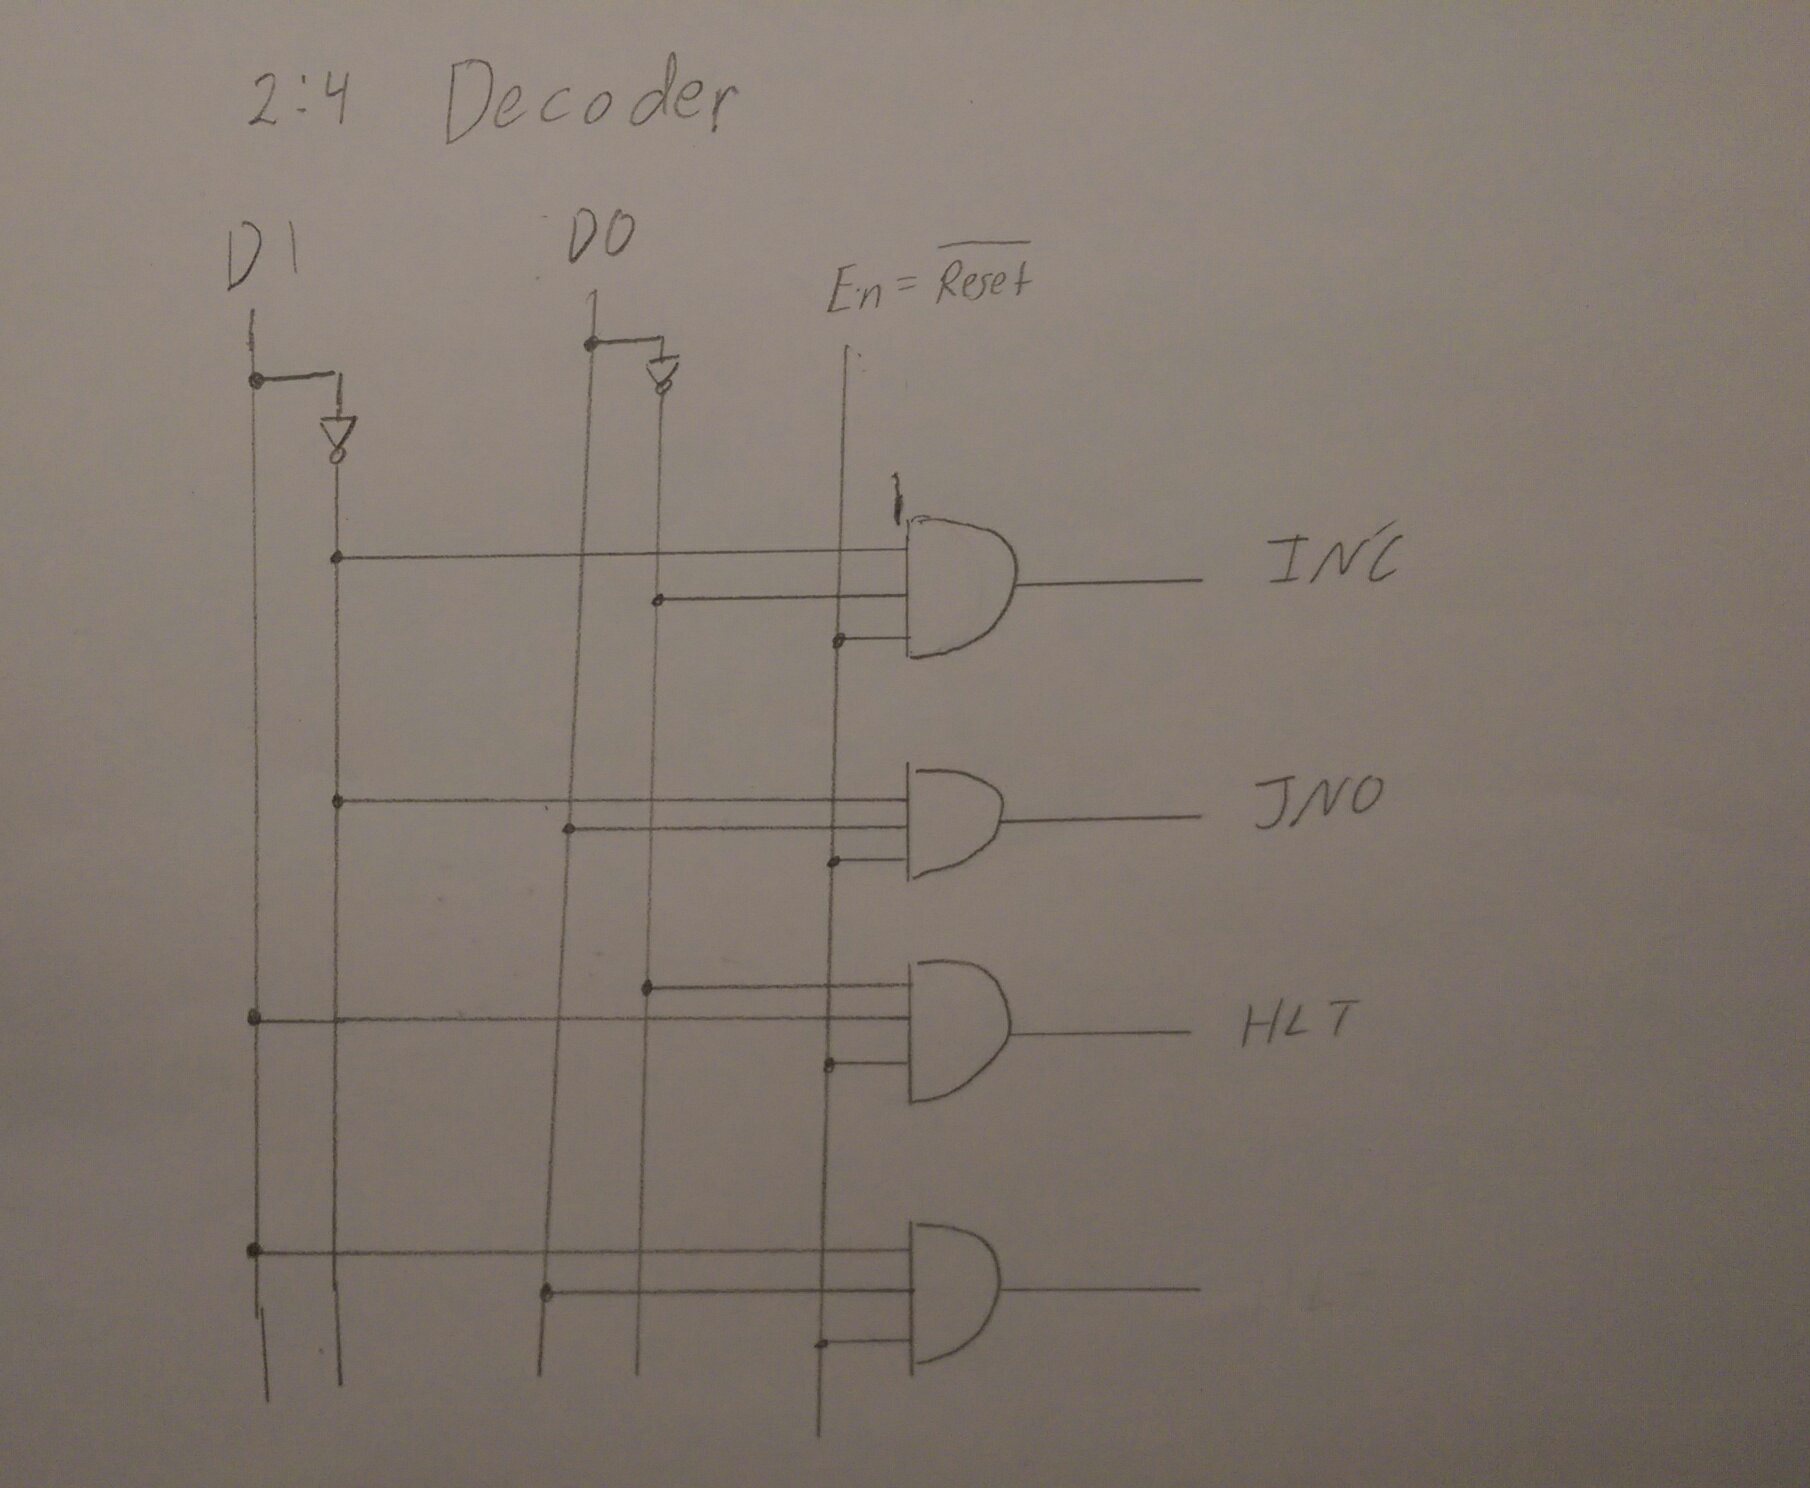 2:4 Decoder
D1
D0
En = \overline{Reset}
INC
JNO
HLT